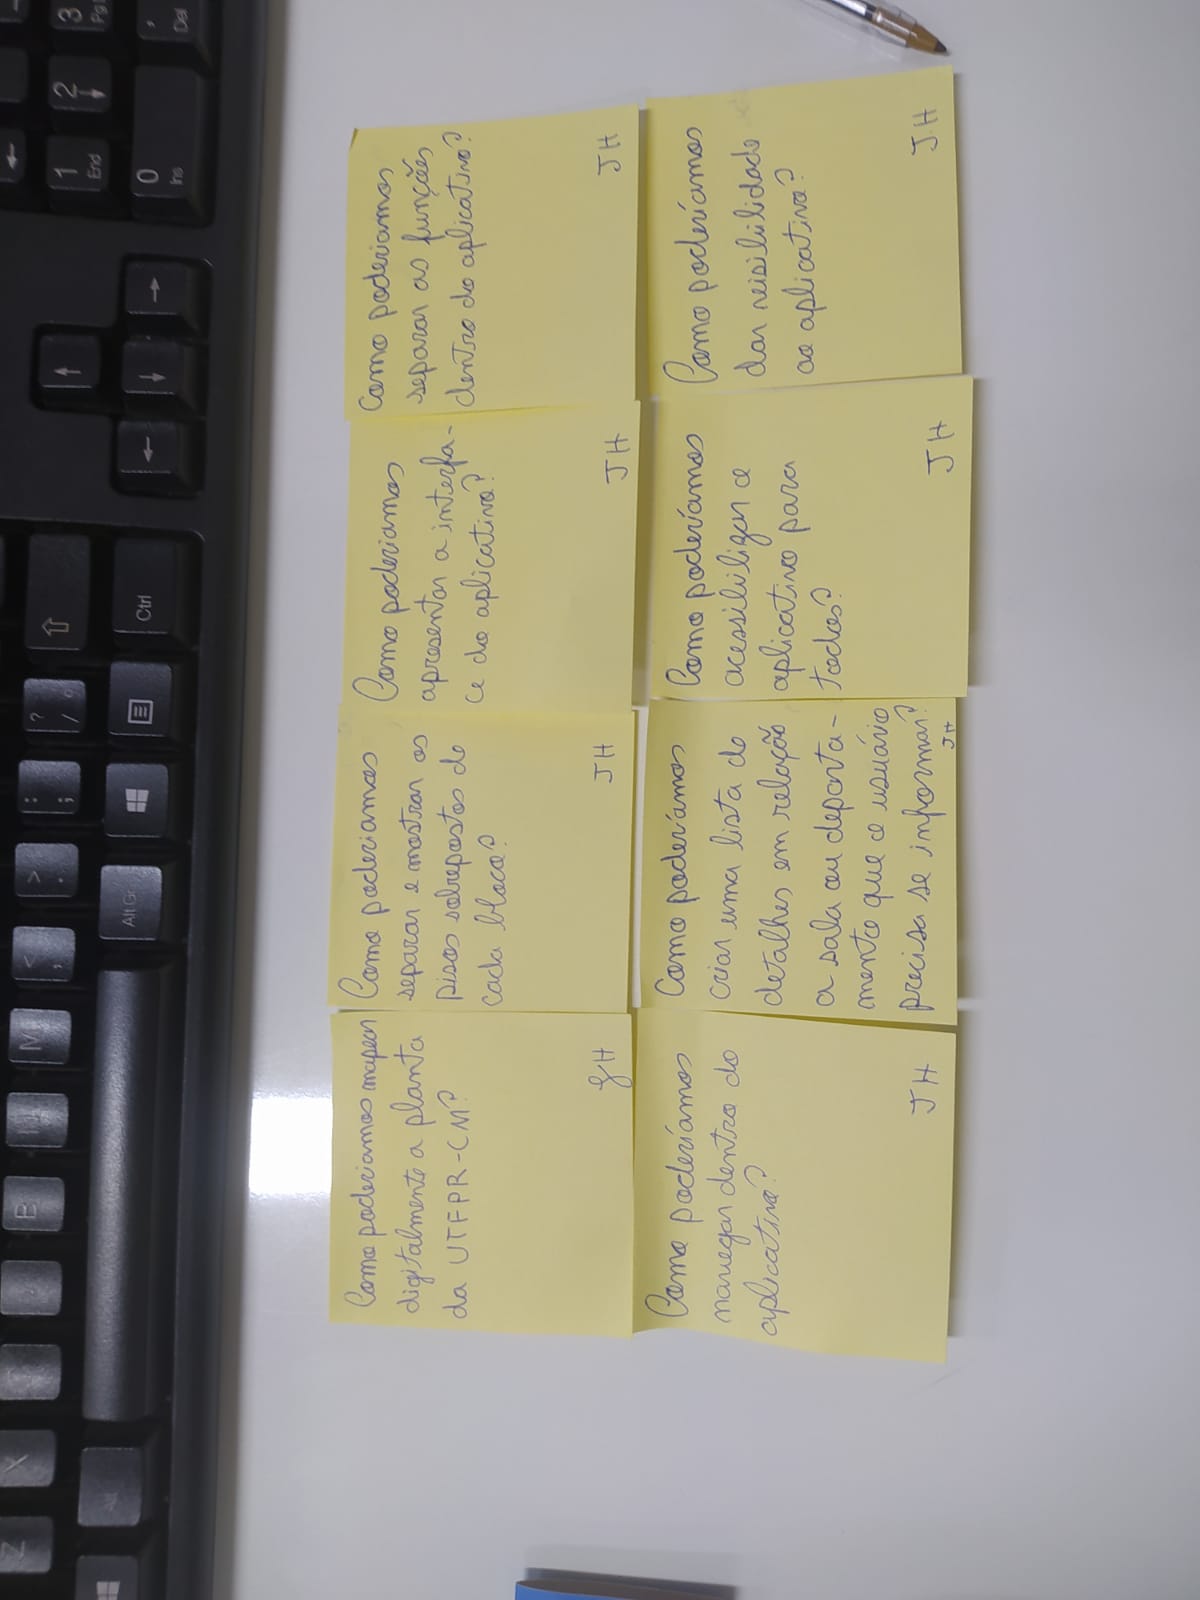 Como poderiamos mapear
digitalmente a planta
da UTFPR-CM?
JH
Como poderiamos
separar e mostrar os
pisos sobrepostos de
cada bloco?
JH
Como poderiamos
apresentar a interfa-
ce do aplicativo?
JH
Como poderiamos
separar as funções
dentro do aplicativo?
JH
Como poderíamos
navegar dentro do
aplicativo?
JH
Como poderíamos
criar uma lista de
detalhes em relação
a sala ou departa-
mento que o usuário
precisa se informar?
JH
Como poderíamos
acessibilizar o
aplicativo para
todos?
JH
Como poderíamos
dar visibilidade
ao aplicativo?
JH
3
PgDn
,
Del
1
End
2
0
Ins
?
/
°
:
;
>
.
<
,
M
B
X
Z
Ctrl
Alt Gr
Alt